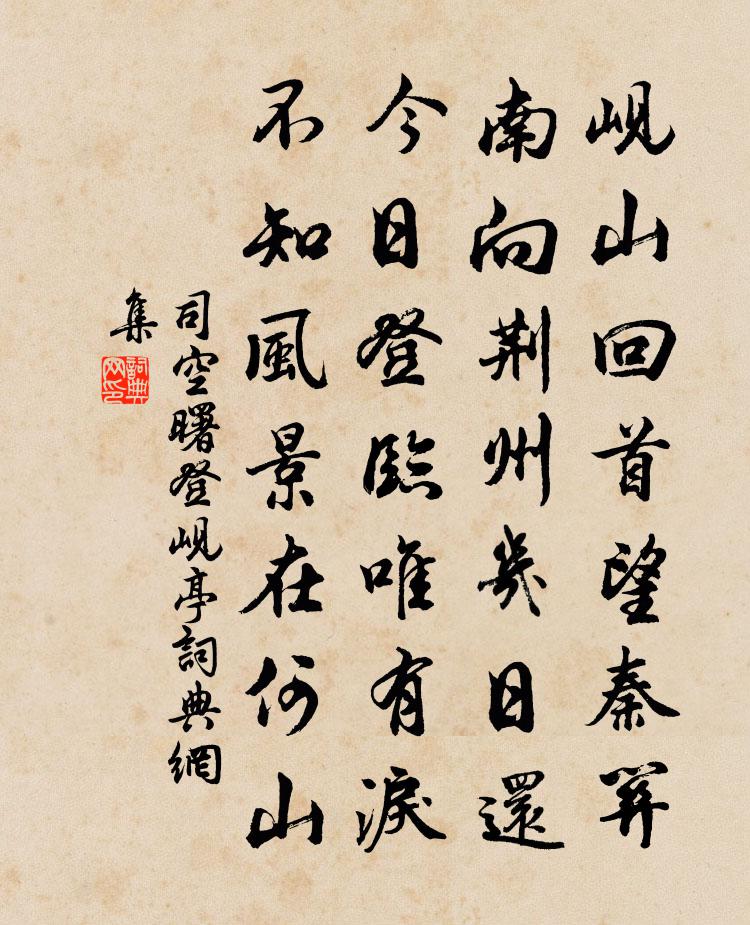 峴山回首望秦關
南向荆州幾日還
今日登臨唯有淚
不知風景在何山
司空曙登峴亭詞典網
集
詞典
网印